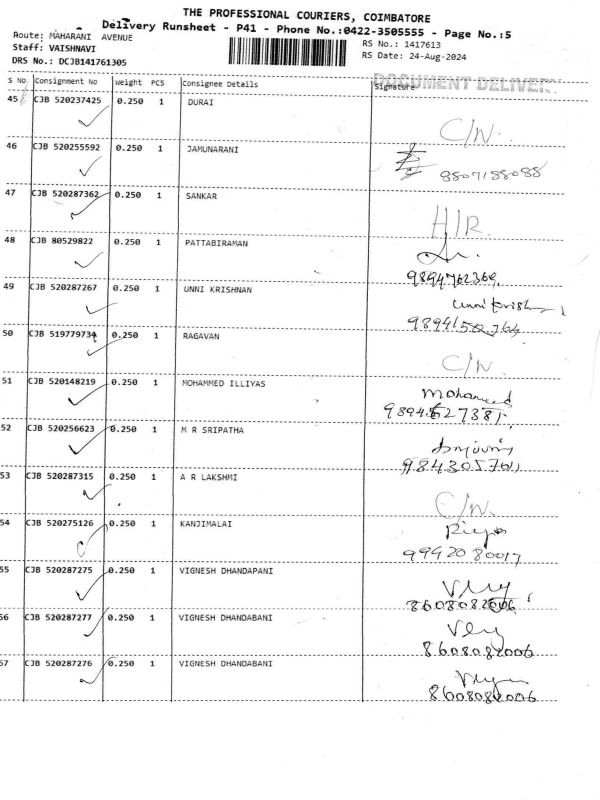 THE PROFESSIONAL COURIERS, COIMBATORE
Delivery Runsheet - P41 - Phone No.:0422-3505555 - Page No.:5
Route: MAHARANI AVENUE
RS No.: 1417613
Staff: VAISHNAVI
RS Date: 24-Aug-2024
DRS No.: DCJB141761305
DOCUMENT DELIVERY
S No Consignment No Weight PCS Consignee Details Signature
45 CJB 520237425 0.250 1 DURAI
C/N.
46 CJB 520255592 0.250 1 JAMUNARANI
8807188088
47 CJB 520287362 0.250 1 SANKAR
H/R.
48 CJB 80529822 0.250 1 PATTABIRAMAN
9894762369.
49 CJB 520287267 0.250 1 UNNI KRISHNAN
Unni krishn
50 CJB 519779734 0.250 1 RAGAVAN
C/N.
51 CJB 520148219 0.250 1 MOHAMMED ILLIYAS
Mohameed
9894527381.
52 CJB 520256623 0.250 1 M R SRIPATHA
53 CJB 520287315 0.250 1 A R LAKSHMI
C/N.
54 CJB 520275126 0.250 1 KANJIMALAI
Riya
9942080017
55 CJB 520287275 0.250 1 VIGNESH DHANDAPANI
8608082006
56 CJB 520287277 0.250 1 VIGNESH DHANDABANI
8608082006
57 CJB 520287276 0.250 1 VIGNESH DHANDABANI
8608082006